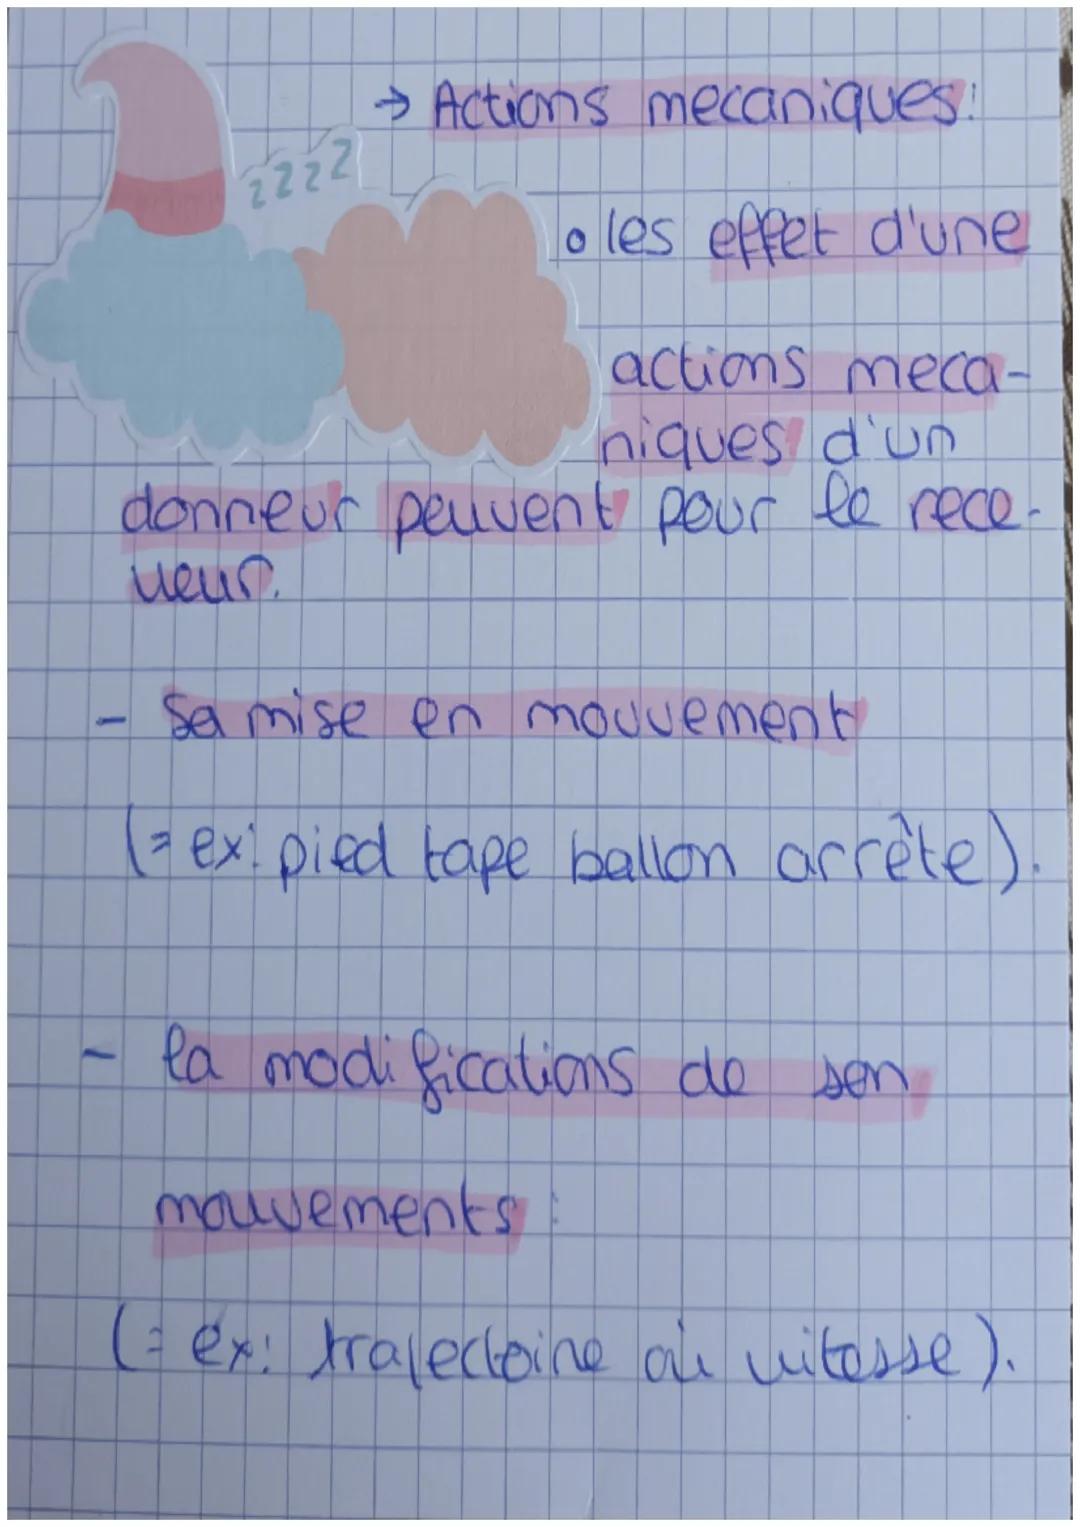 → Actions mecaniques:
zzzz
• les effet d'une
actions meca-
niques d'un
donneur peuvent pour le rece-
veur.
- Sa mise en mouvement
(= ex: pied tape ballon arrête).
- la modifications de son
mouvements :
(= ex: trajectoire où vitesse).